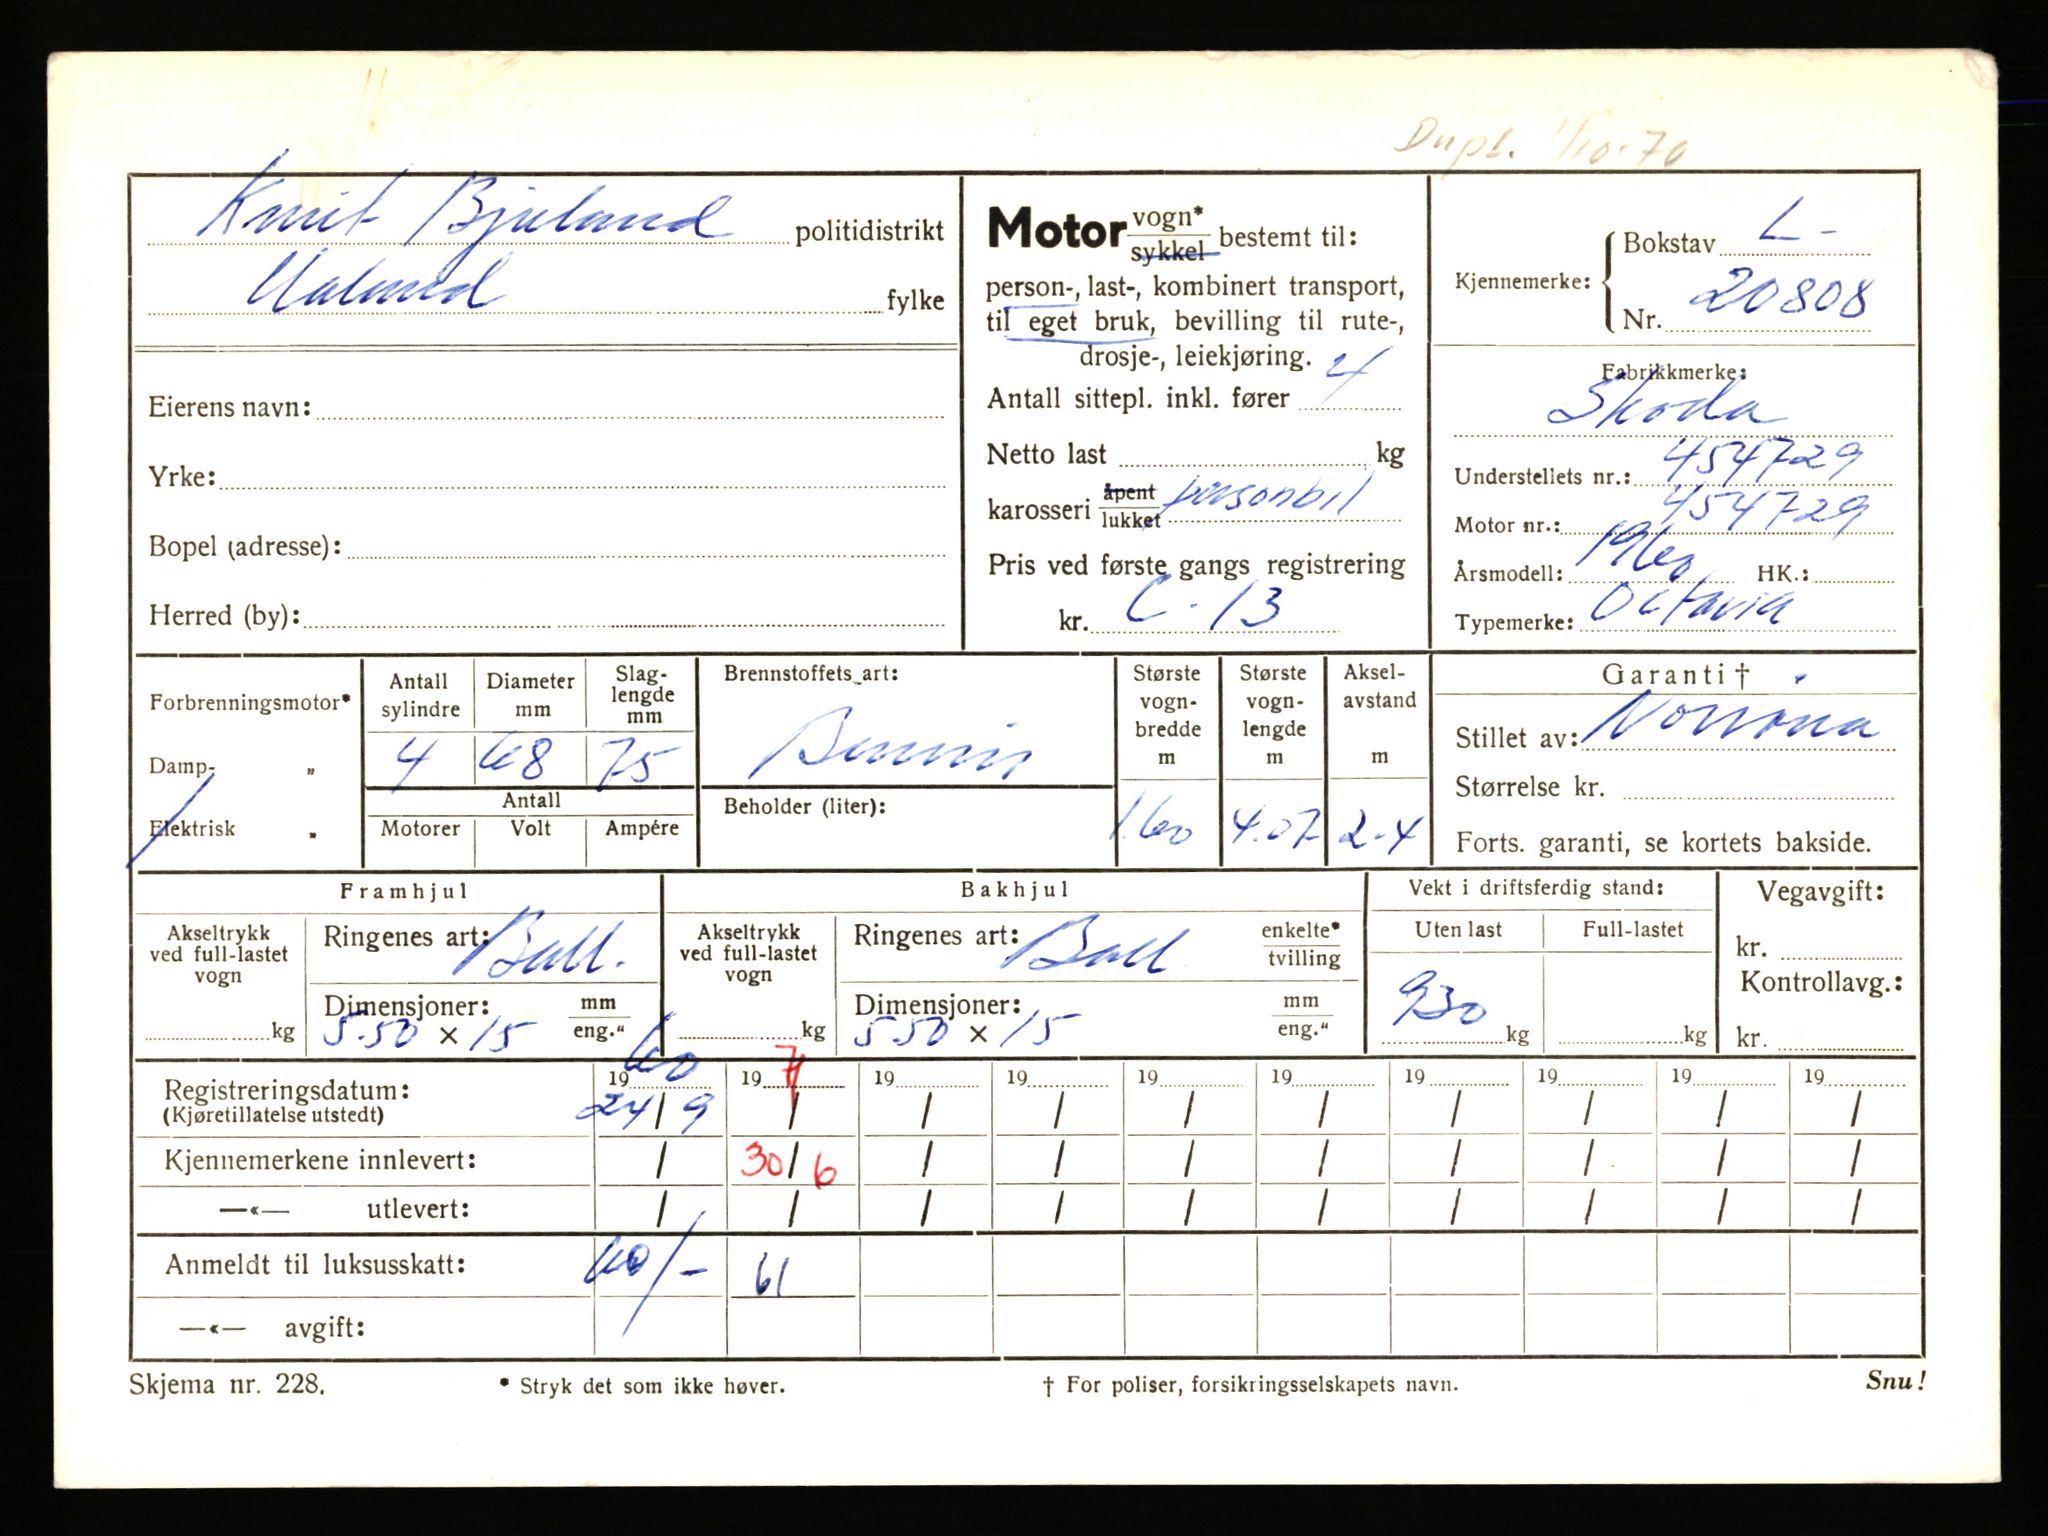 Dupl. 1/10-70
Knut Bjuland politidistrikt
Ualand fylke
Eierens navn:
Yrke:
Bopel (adresse):
Herred (by):
Motor vogn* sykkel bestemt til:
person-, last-, kombinert transport,
til eget bruk, bevilling til rute-,
drosje-, leiekjøring.
Antall sittepl. inkl. fører 4
Netto last kg
karosseri åpent lukket personbil
Pris ved første gangs registrering
kr. C-13
Kjennemerke: Bokstav L-
Nr. 20808
Fabrikkmerke:
Skoda
Understellets nr.: 454729
Motor nr.: 454729
Årsmodell: 1960 HK.:
Typemerke: Octavia
Forbrenningsmotor*
Damp- „
Elektrisk „
Antall sylindre Diameter mm Slag-lengde mm
4 68 75
Antall
Motorer Volt Ampére
Brennstoffets art:
Bensin
Beholder (liter):
Største vogn-bredde m Største vogn-lengde m Aksel-avstand m
1.60 4.07 2-4
Garanti †
Stillet av: Norrøna
Størrelse kr.
Forts. garanti, se kortets bakside.
Framhjul
Akseltrykk ved full-lastet vogn kg
Ringenes art: Ball.
Dimensjoner: mm eng."
5.50 × 15
Bakhjul
Akseltrykk ved full-lastet vogn kg
Ringenes art: Ball enkelte* tvilling
Dimensjoner: mm eng."
5.50 × 15
Vekt i driftsferdig stand:
Uten last Full-lastet
930 kg kg
Vegavgift:
kr.
Kontrollavg.:
kr.
Registreringsdatum: 1960 197 19 19 19 19 19 19 19 19
(Kjøretillatelse utstedt) 24/9 / / / / / / / / /
Kjennemerkene innlevert: / 30/6 / / / / / / / /
—«— utlevert: / / / / / / / / / /
Anmeldt til luksusskatt: 60/- 61
—«— avgift:
Skjema nr. 228. * Stryk det som ikke høver. † For poliser, forsikringsselskapets navn. Snu!